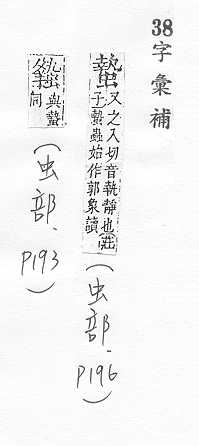 38字彙補
蟄又之入切音執靜也莊子蟄蟲始作郭象讀
(虫部.P196)
與蟄同
(虫部.P193)